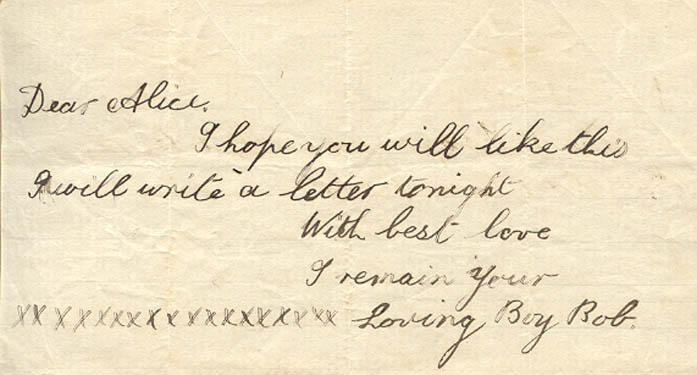 Dear Alice.
I hope you will like this
I will write a letter tonight
With best love
I remain Your
xxxxxxxxxxxxxxxxxx Loving Boy Bob.